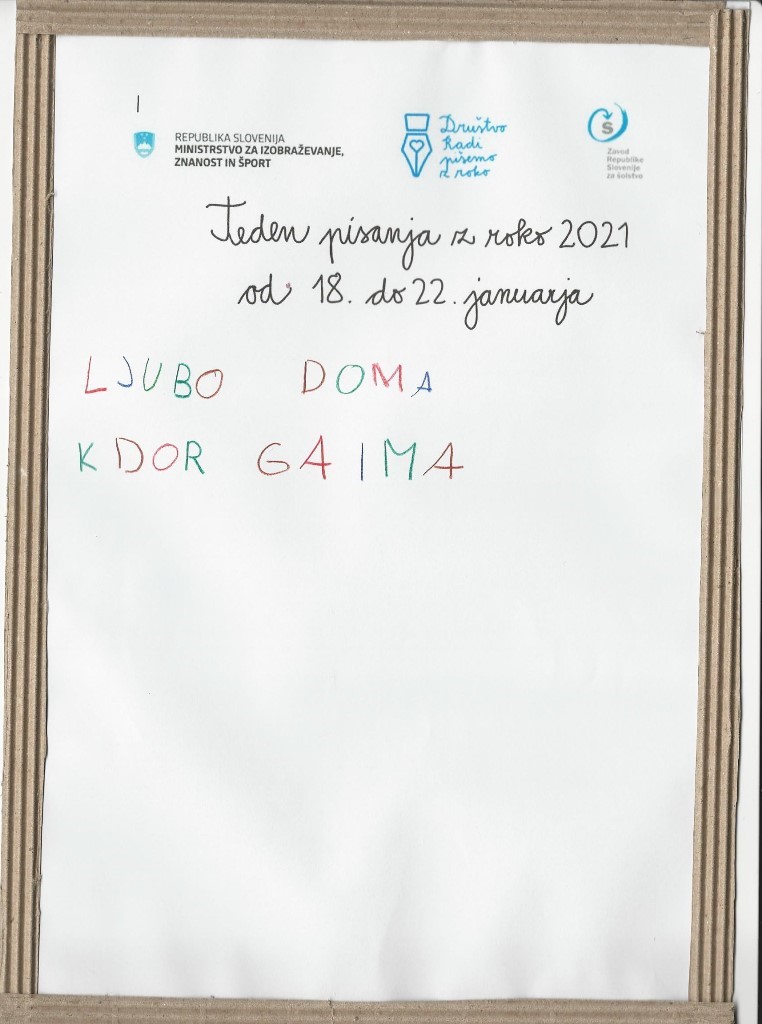 REPUBLIKA SLOVENIJA
MINISTRSTVO ZA IZOBRAŽEVANJE,
ZNANOST IN ŠPORT
Društvo
Radi
pišemo
z roko
Š
Zavod
Republike
Slovenije
za šolstvo
Teden pisanja z roko 2021
od 18. do 22. januarja
LJUBO DOMA
KDOR GA IMA